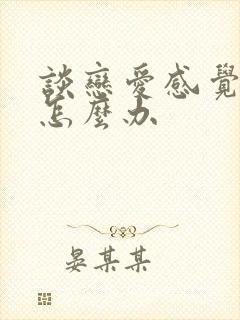 談戀愛感覺
怎麼办
晏某某